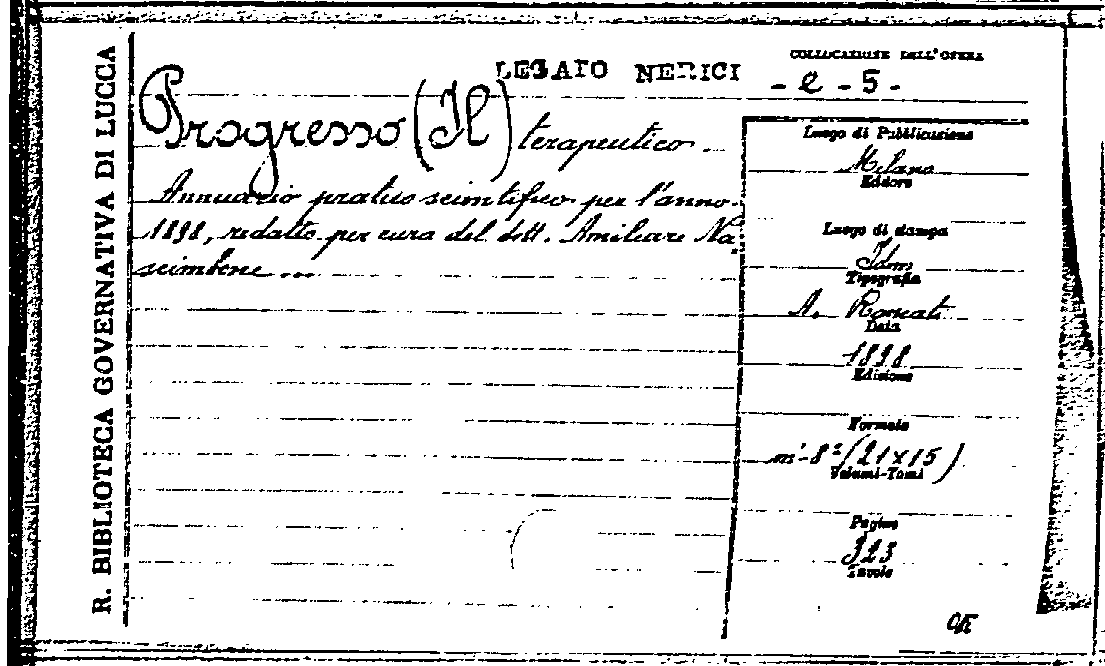 R. BIBLIOTECA GOVERNATIVA DI LUCCA
LEGATO NERICI
COLLOCAZIONE DELL'OPERA
- e - 5 -
Progresso (Il) terapeutico
Annuario pratico scientifico per l'anno
1898, redatto per cura del dott. Amilcare Na-
scimbene ...
Luogo di Pubblicazione
Milano
Editore
Luogo di stampa
Idm
Tipografia
A. Roncati
Data
1898
Edizione
Formato
in-8° (21x15)
Volumi-Tomi
Pagine
323
Tavole